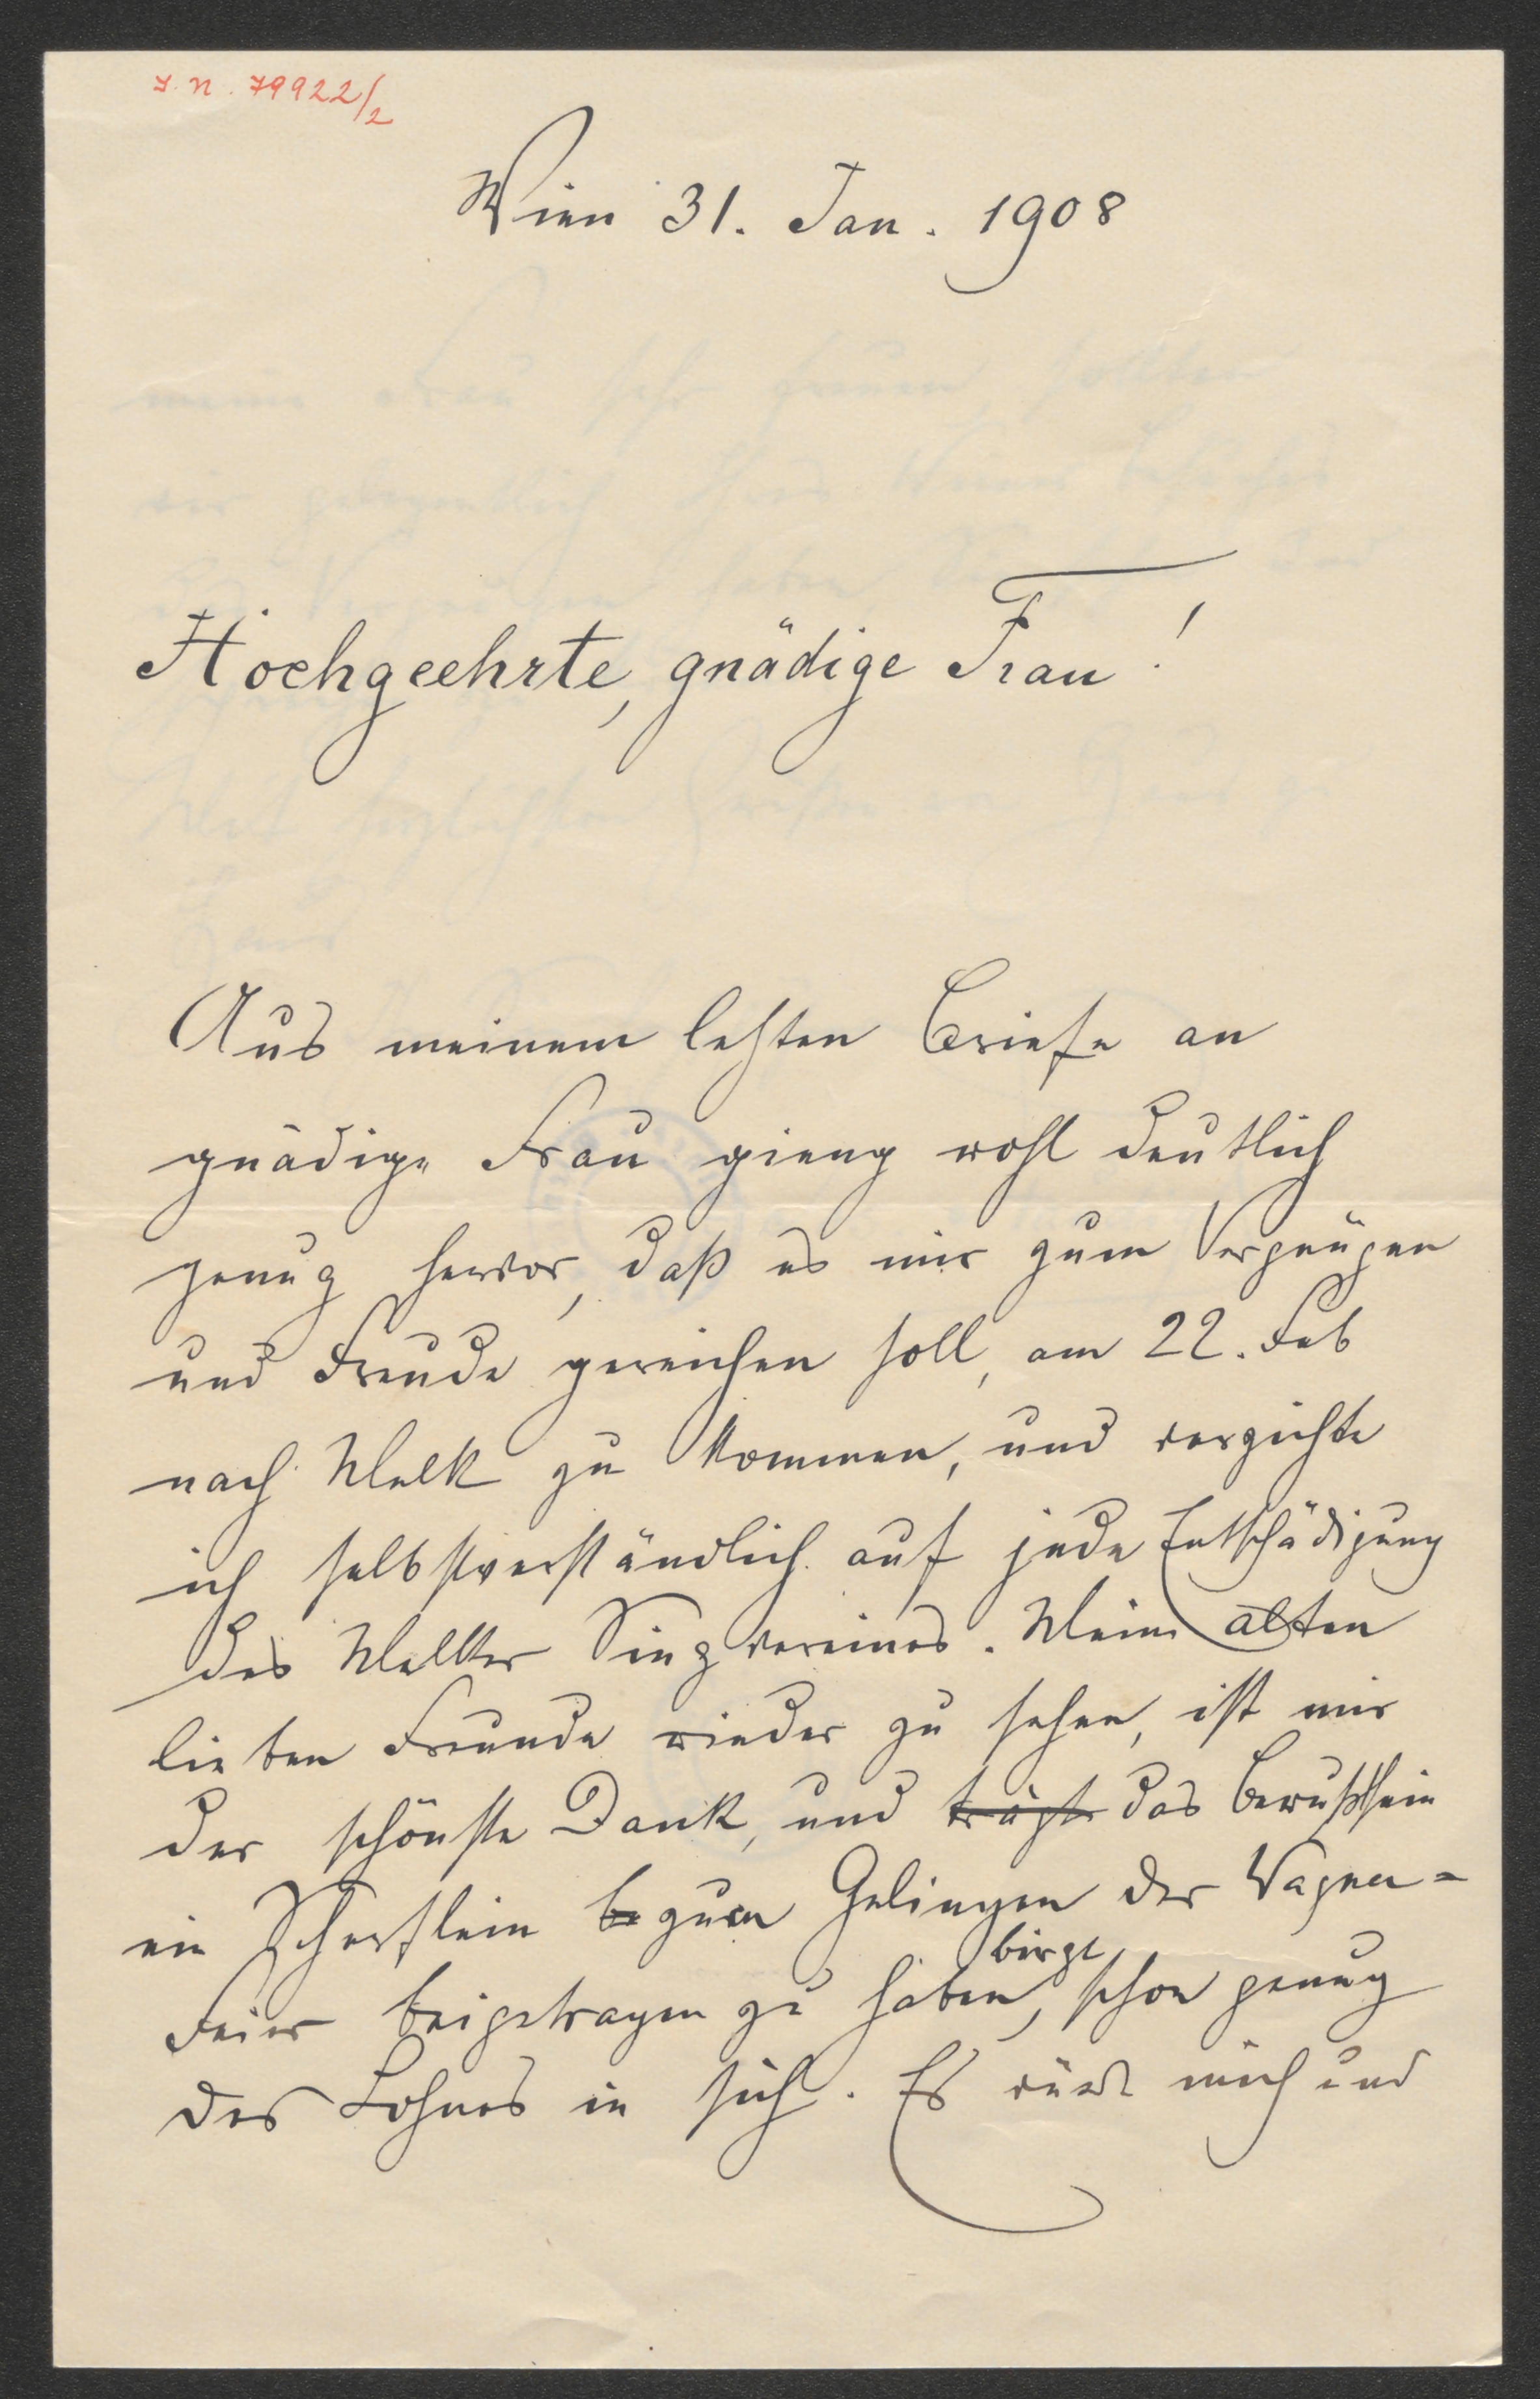 J. N. 79922/2
Wien 31. Jan. 1908
Hochgeehrte, gnädige Frau!
Aus meinem letzten Briefe an
gnädige Frau gieng wohl deutlich
genug hervor, daß es mir zum Vergnügen
und Freude gereichen soll, am 22. Feb
nach Melk zu kommen, und verzichte
ich selbstverständlich auf jede Entschädigung
des Melker Singvereines. Meine alten
lieben Freunde wieder zu sehen, ist mir
der schönste Dank, und trägt das Bewußtsein
ein Scherflein be zum Gelingen der Wagner-
birgt
Feier beigetragen zu haben, schon genug
des Lohnes in sich. Es rührt mich und